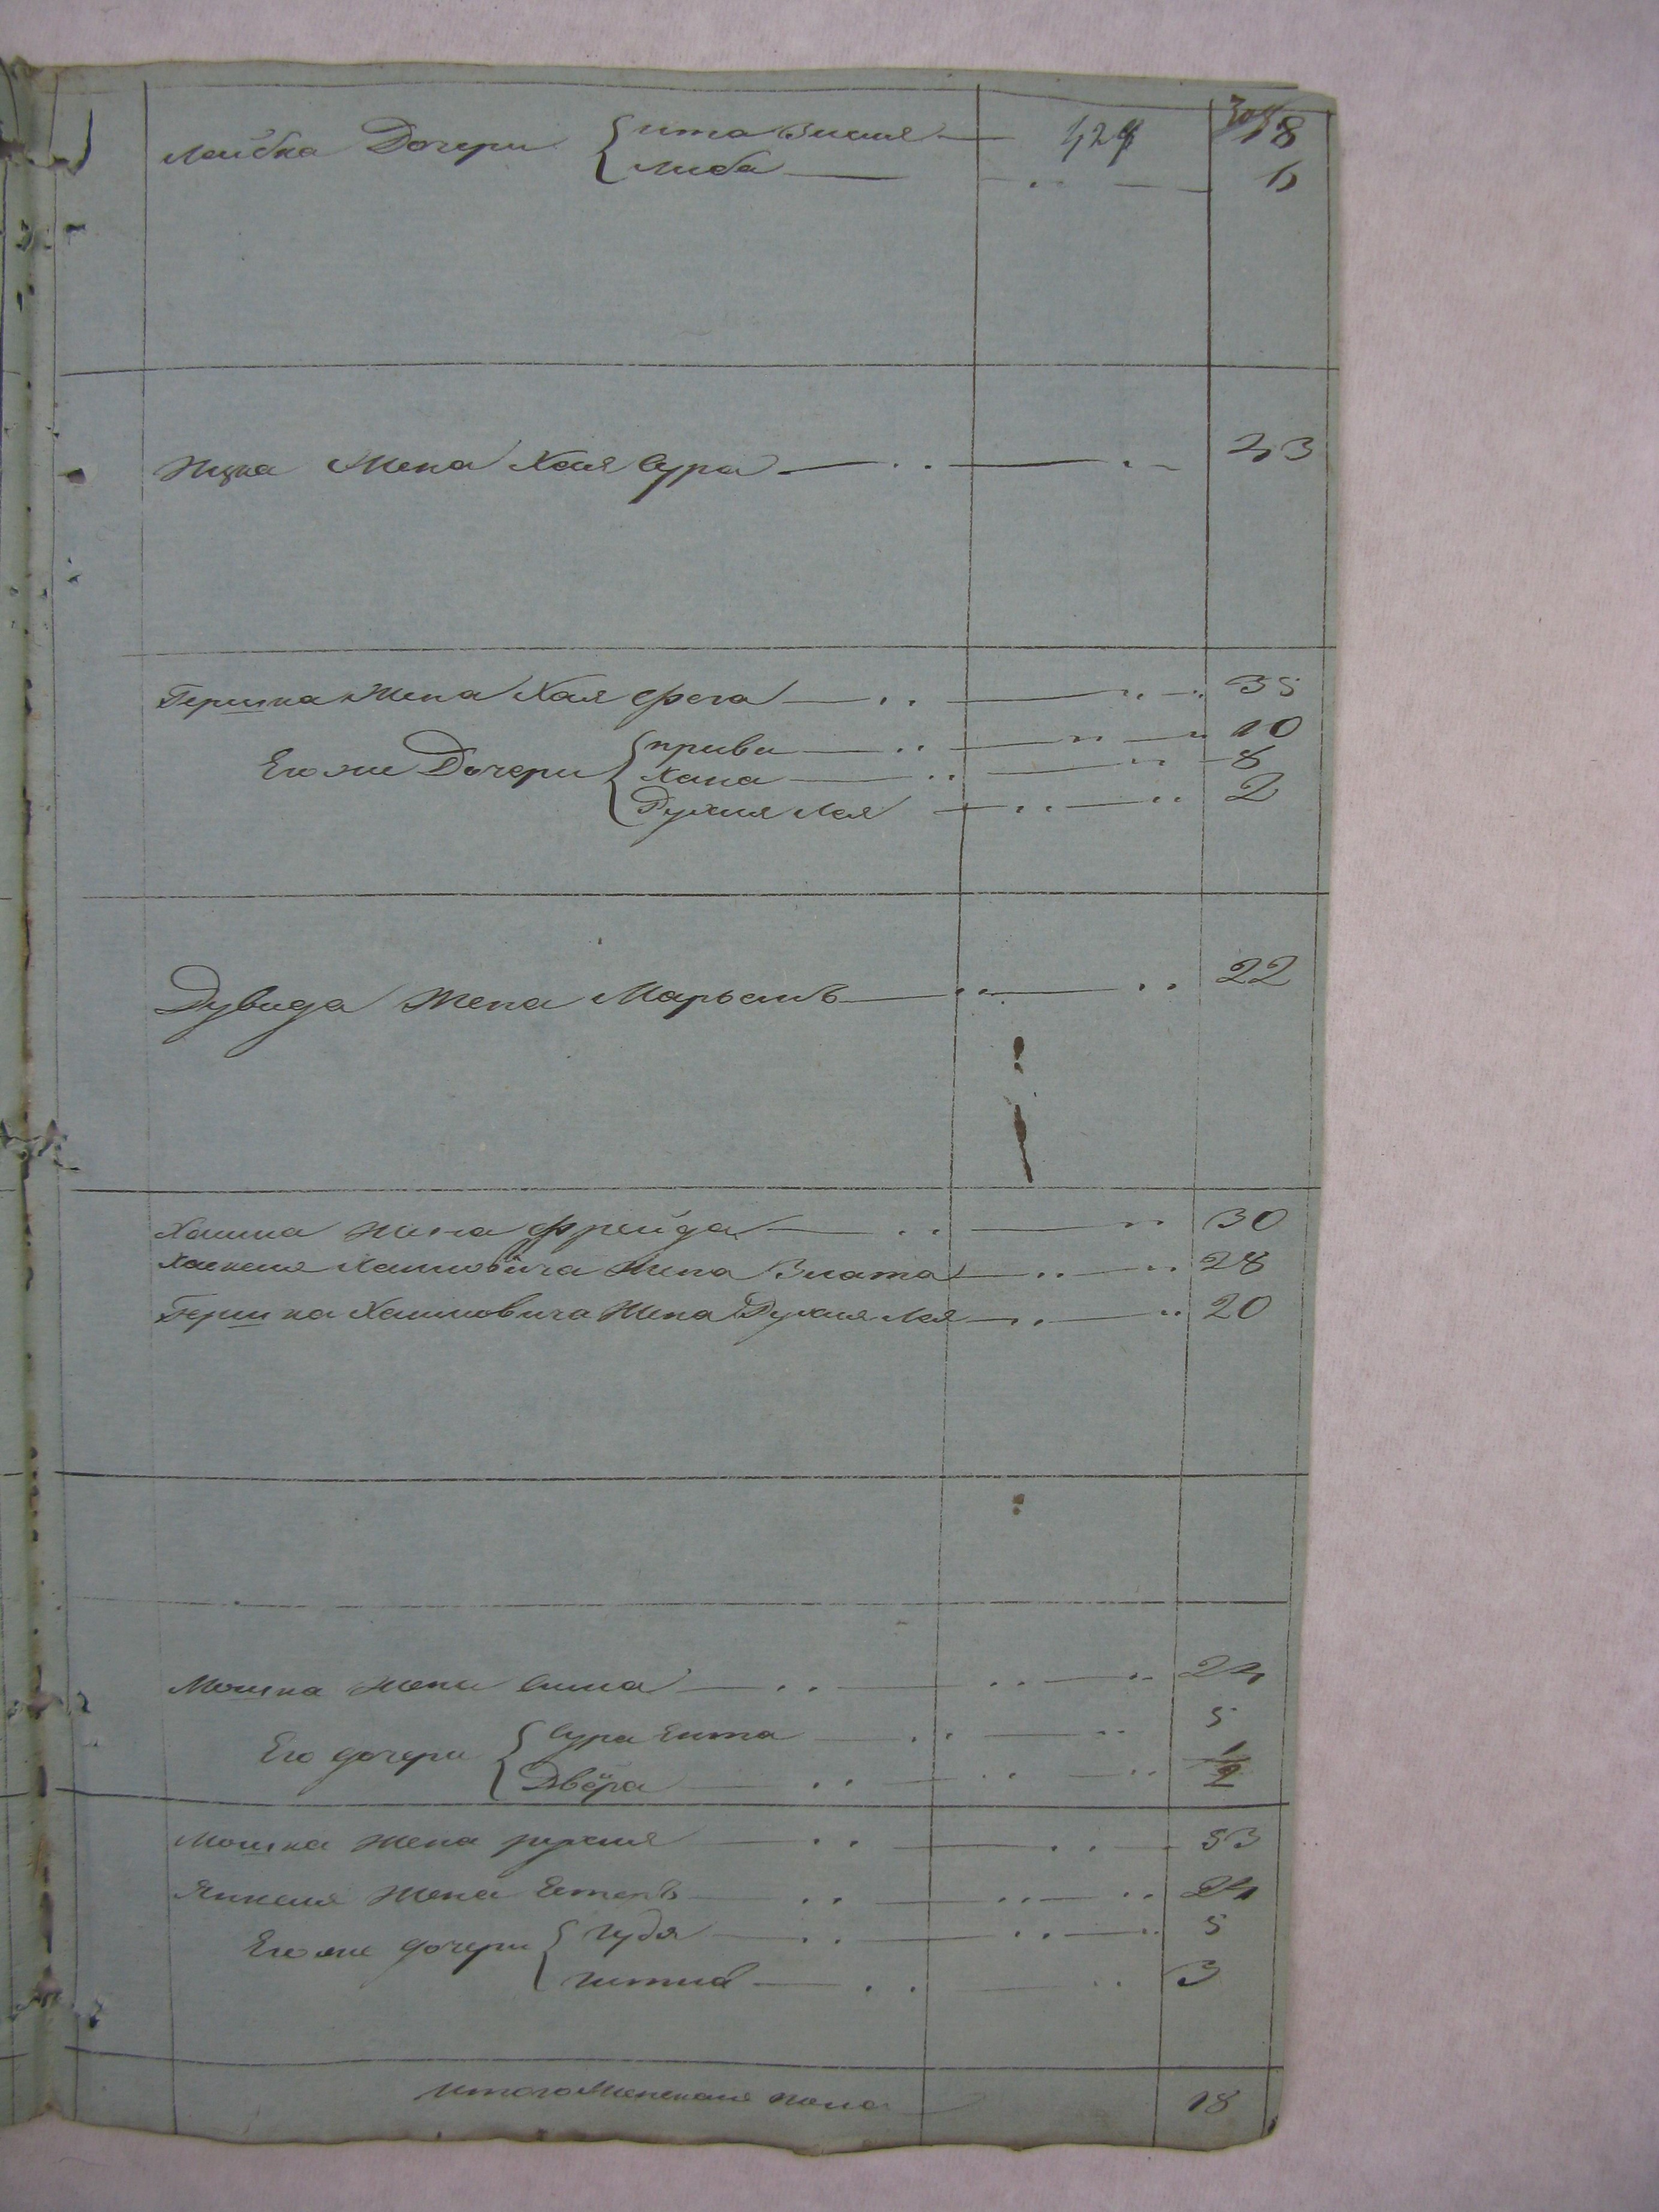 Лейбка Дочери { ита Зисля — 429 18
Либа — 6
Ицка Жена Хая Сура — 43
Гершка Жена Хая Фега — 35
Его же Дочери { прива — 10
Хана — 8
Рухля Лея — 2
Дувида Жена Марьемъ — 22
Хаима жена Фрейда — 30
Хаскеля Хаимовича Жена Злата — 28
Гершка Хаимовича Жена Рухля Лея — 20
Мошка жена Сима — 24
Его дочери { Сура Ента — 5
Двёра — 1/2
Мошка жена рухля — 53
Янкеля жена Естеръ — 24
Его же дочери { гудя — 5
3
итого Женскаго пола 18